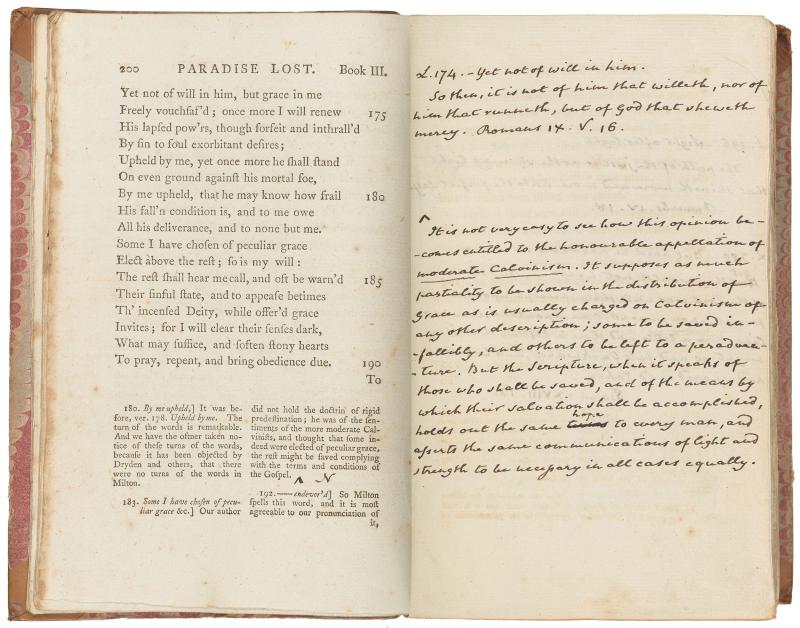 200 PARADISE LOST. Book III.
Yet not of will in him, but grace in me
Freely vouchſaf'd ; once more I will renew 175
His lapſed pow'rs, though forfeit and inthrall'd
By ſin to foul exorbitant deſires;
Upheld by me, yet once more he ſhall ſtand
On even ground againſt his mortal foe,
By me upheld, that he may know how frail 180
His fall'n condition is, and to me owe
All his deliverance, and to none but me.
Some I have choſen of peculiar grace
Elect above the reſt ; ſo is my will :
The reſt ſhall hear me call, and oft be warn'd 185
Their ſinful ſtate, and to appeaſe betimes
Th' incenſed Deity, while offer'd grace
Invites ; for I will clear their ſenſes dark,
What may ſuffice, and ſoften ſtony hearts
To pray, repent, and bring obedience due. 190
To
180. By me upheld,] It was be-
fore, ver. 178. Upheld by me. The
turn of the words is remarkable.
And we have the ofther taken no-
tice of theſe turns of the words,
becauſe it has been objected by
Dryden and others, that there
were no turns of the words in
Milton.
183. Some I have choſen of pecu-
liar grace &c.] Our author
did not hold the doctrin of rigid
predeſtination; he was of the ſen-
timents of the more moderate Cal-
viniſts, and thought that ſome in-
deed were elected of peculiar grace,
the reſt might be ſaved complying
with the terms and conditions of
the Goſpel. ^ N
192. —— endevor'd] So Milton
ſpells this word, and it is moſt
agreeable to our pronunciation of
it,
L. 174. - Yet not of will in him.
So then, it is not of him that willeth, nor of
him that runneth, but of God that sheweth
mercy. Romans IX. V. 16.
^ It is not very easy to see how this opinion be-
-comes entitled to the honourable appellation of
moderate Calvinism. It supposes as much
partiality to be shown in the distribution of
Grace as is usually charged on Calvinism of
any other description; some to be saved in-
-fallibly, and others to be left to a peradven-
-ture. But the Scripture, when it speaks of
those who shall be saved, and of the means by
which their salvation shall be accomplished,
holds out the same hope to every man, and
aſserts the same communications of light and
strength to be neceſsary in all cases equally.